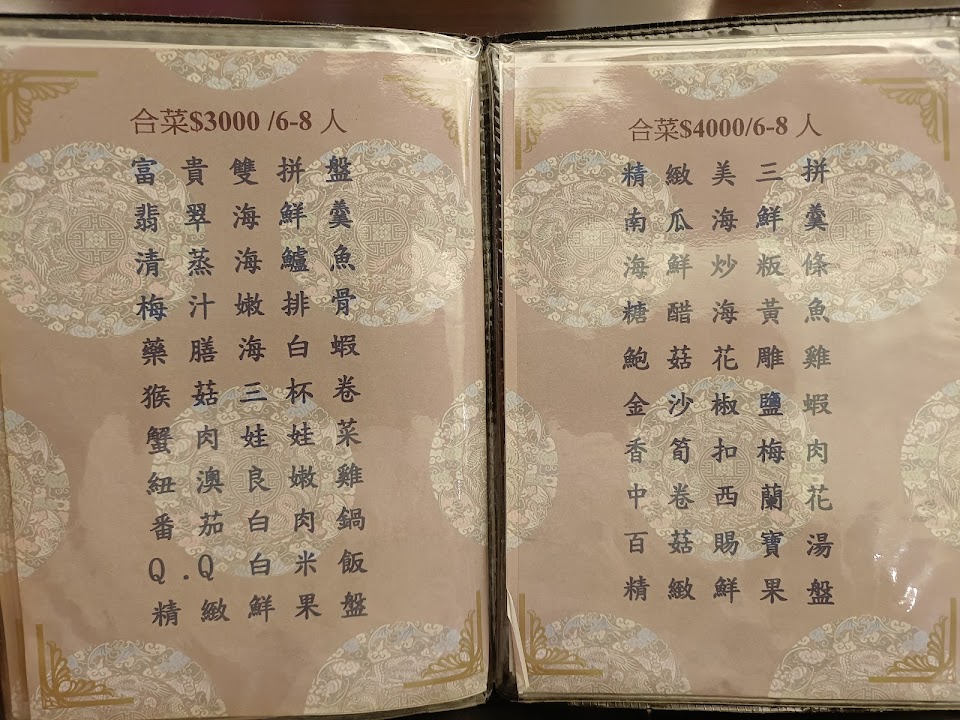 合菜$3000 /6-8 人
富貴雙拼盤
翡翠海鮮羹
清蒸海鱸魚
梅汁嫩排骨
藥膳海白蝦
猴菇三杯卷
蟹肉娃娃菜
紐澳良嫩雞
番茄白肉鍋
Q.Q白米飯
精緻鮮果盤
合菜$4000/6-8 人
精緻美三拼
南瓜海鮮羹
海鮮炒粄條
糖醋海黃魚
鮑菇花雕雞
金沙椒鹽蝦
香筍扣梅肉
中卷西蘭花
百菇賜寶湯
精緻鮮果盤